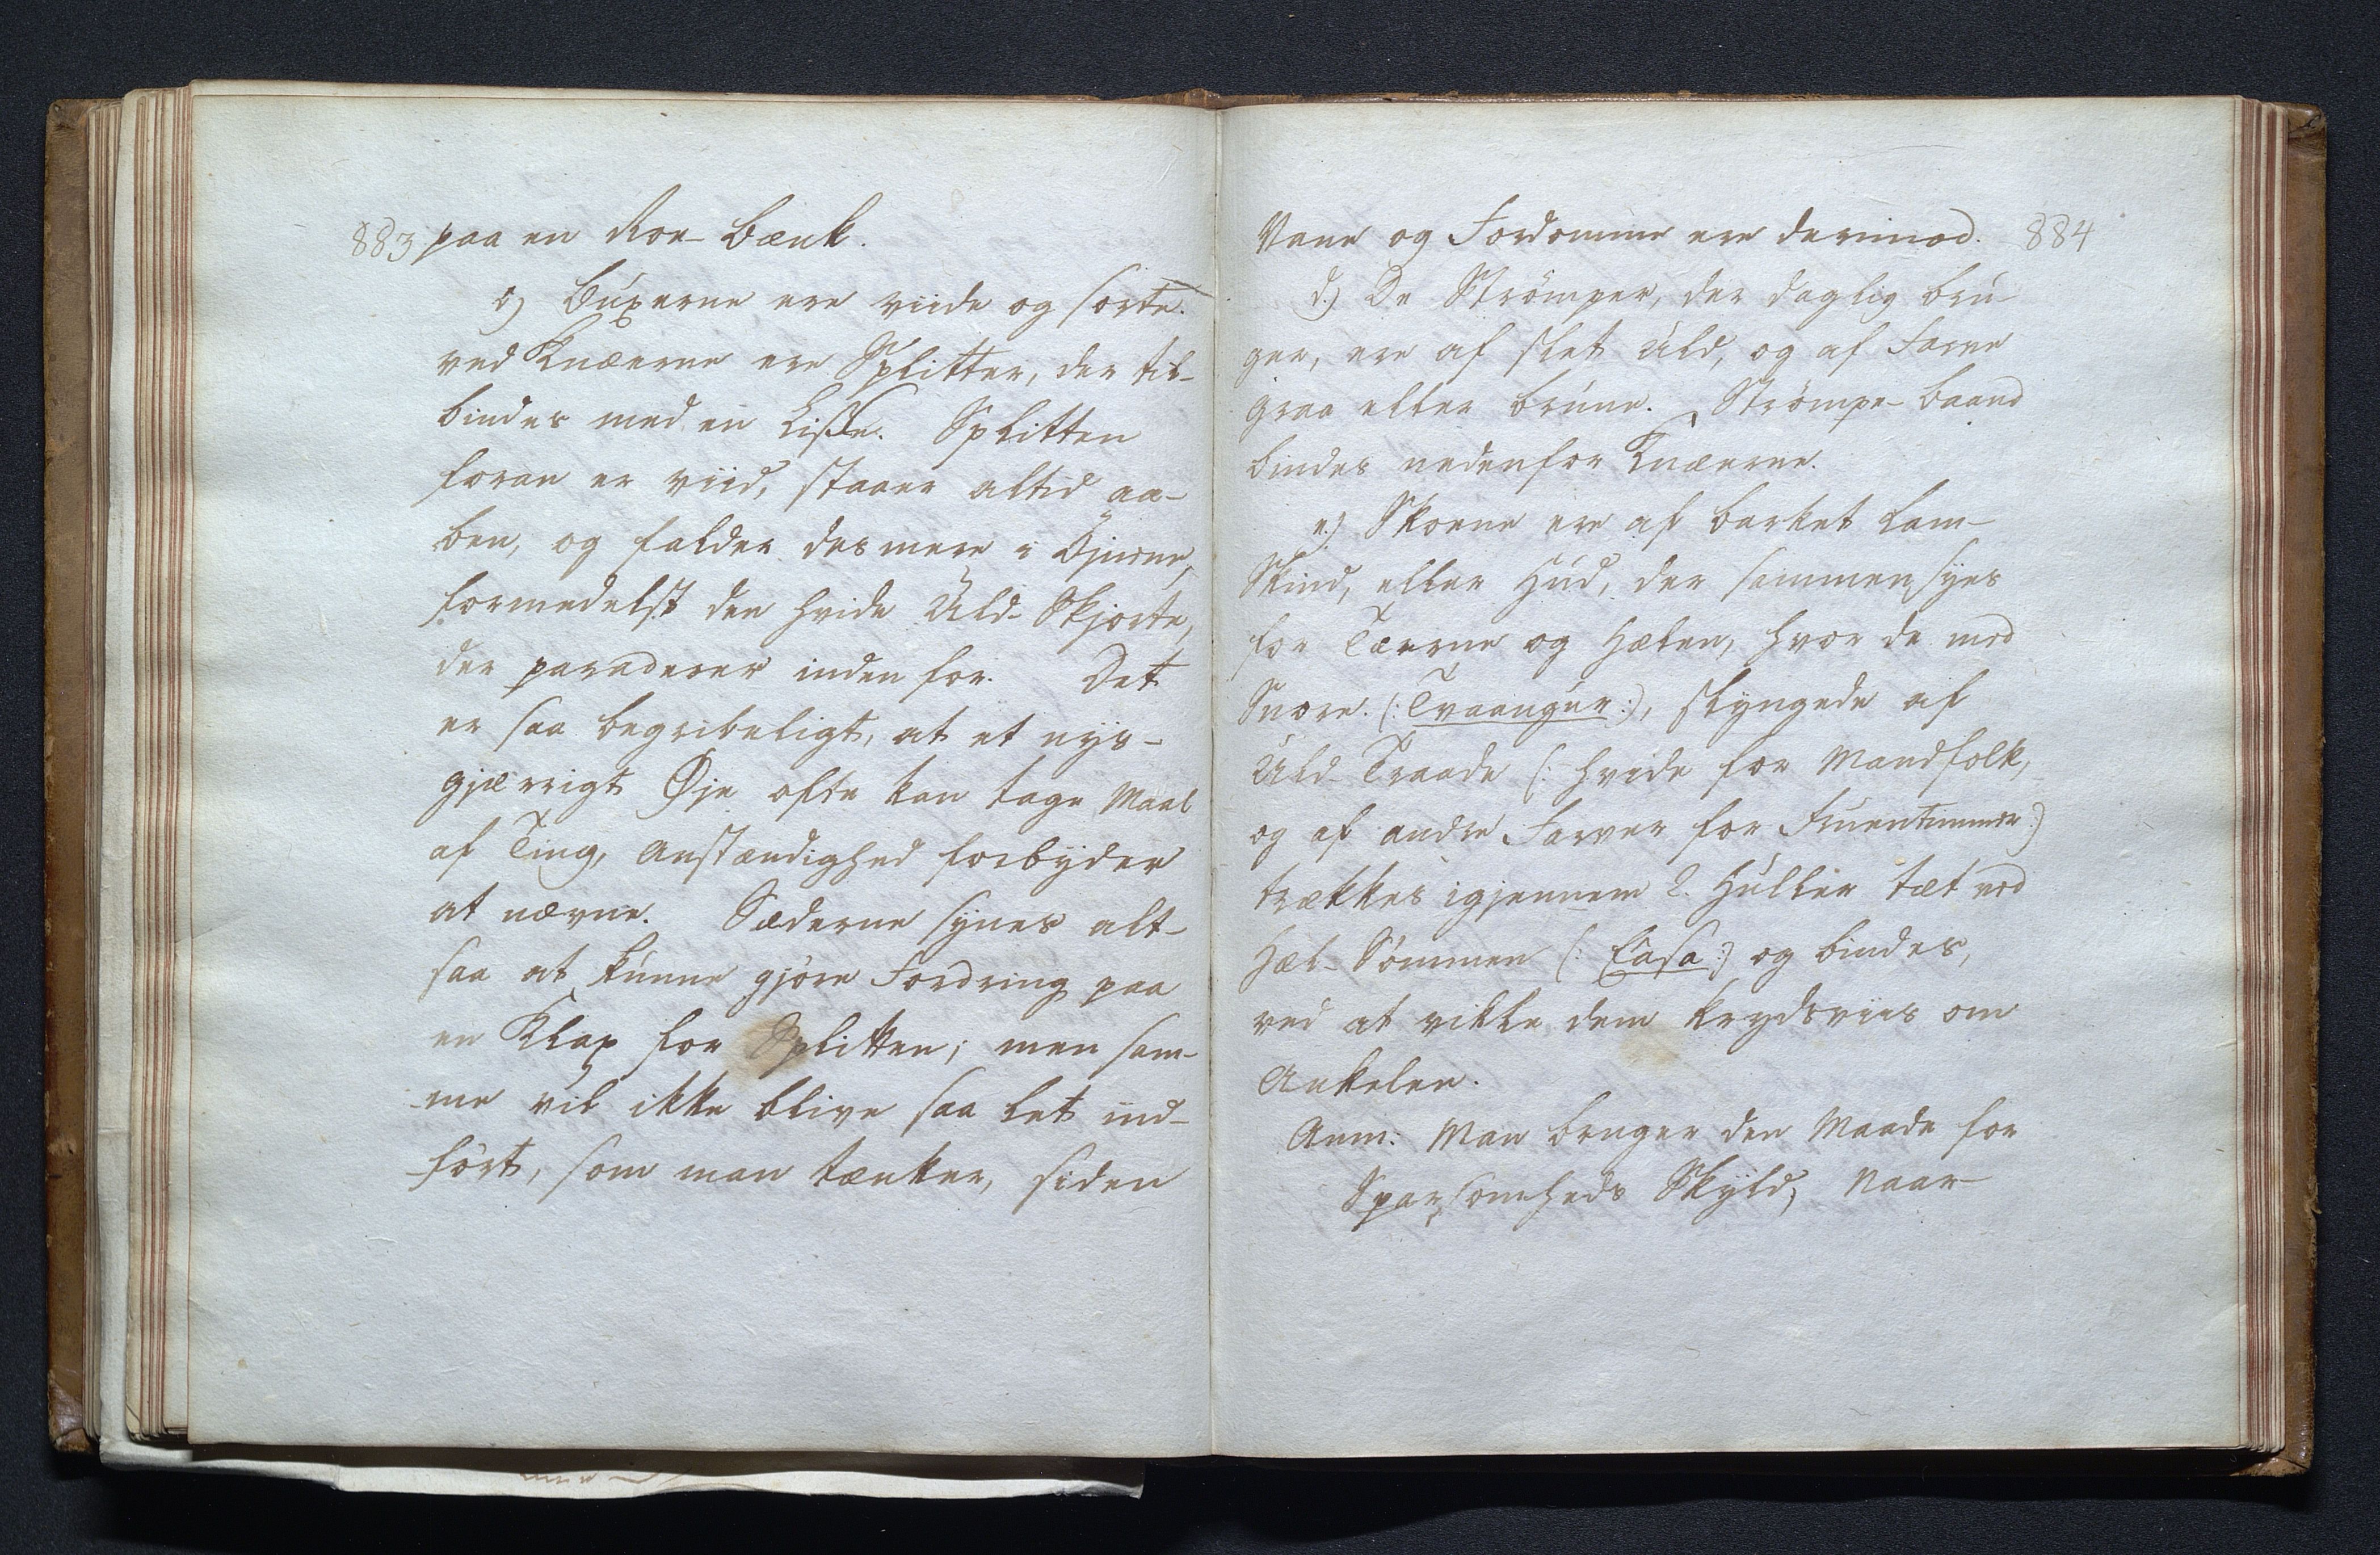 883 paa en Roe-Bænk.
c) Buxerne ere viide og sorte.
ved Knæerne ere Splitter, der til-
bindes med en Lisse. Splitten
foran er viid, staaer altid aa-
ben, og falder desmere i Öjnene,
formedelst den hvide Uld-Skjorte,
der paraderer inden for. Det
er saa begribeligt, at et nys-
gjærrigt Øje ofte kan tage Maal
af Ting, Anstændighed forbyder
at nævne. Sæderne synes alt-
saa at kunne gjöre Fordring paa
en Klap for Splitten; men sam-
me vil ikke blive saa let ind-
fört, som man tænker, siden
Vane og Fordomme ere derimod. 884
d.) De Strömper, der daglig bru-
ger, ere af slet Uld, og af Farve
graa eller brune. Strömpe-Baand
bindes nedenfor Knæerne.
e.) Skoene ere af barket Lam-
Skind, eller Hud, der sammensyes
for Tæerne og Hælen, hvor de med
Snore. (: Tvaangur :), slyngede af
Uld-Traade (: hvide for Mandfolk,
og af andre Farver for Fruentimmer :)
trækkes igjennem 2. Huller tæt ved
Hæl-Sömmen (: Casa :) og bindes,
ved at vikle dem krydsviis om
Ankelen.
Anm: Man bruger den Maade for
Sparsomheds Skyld, Naar-